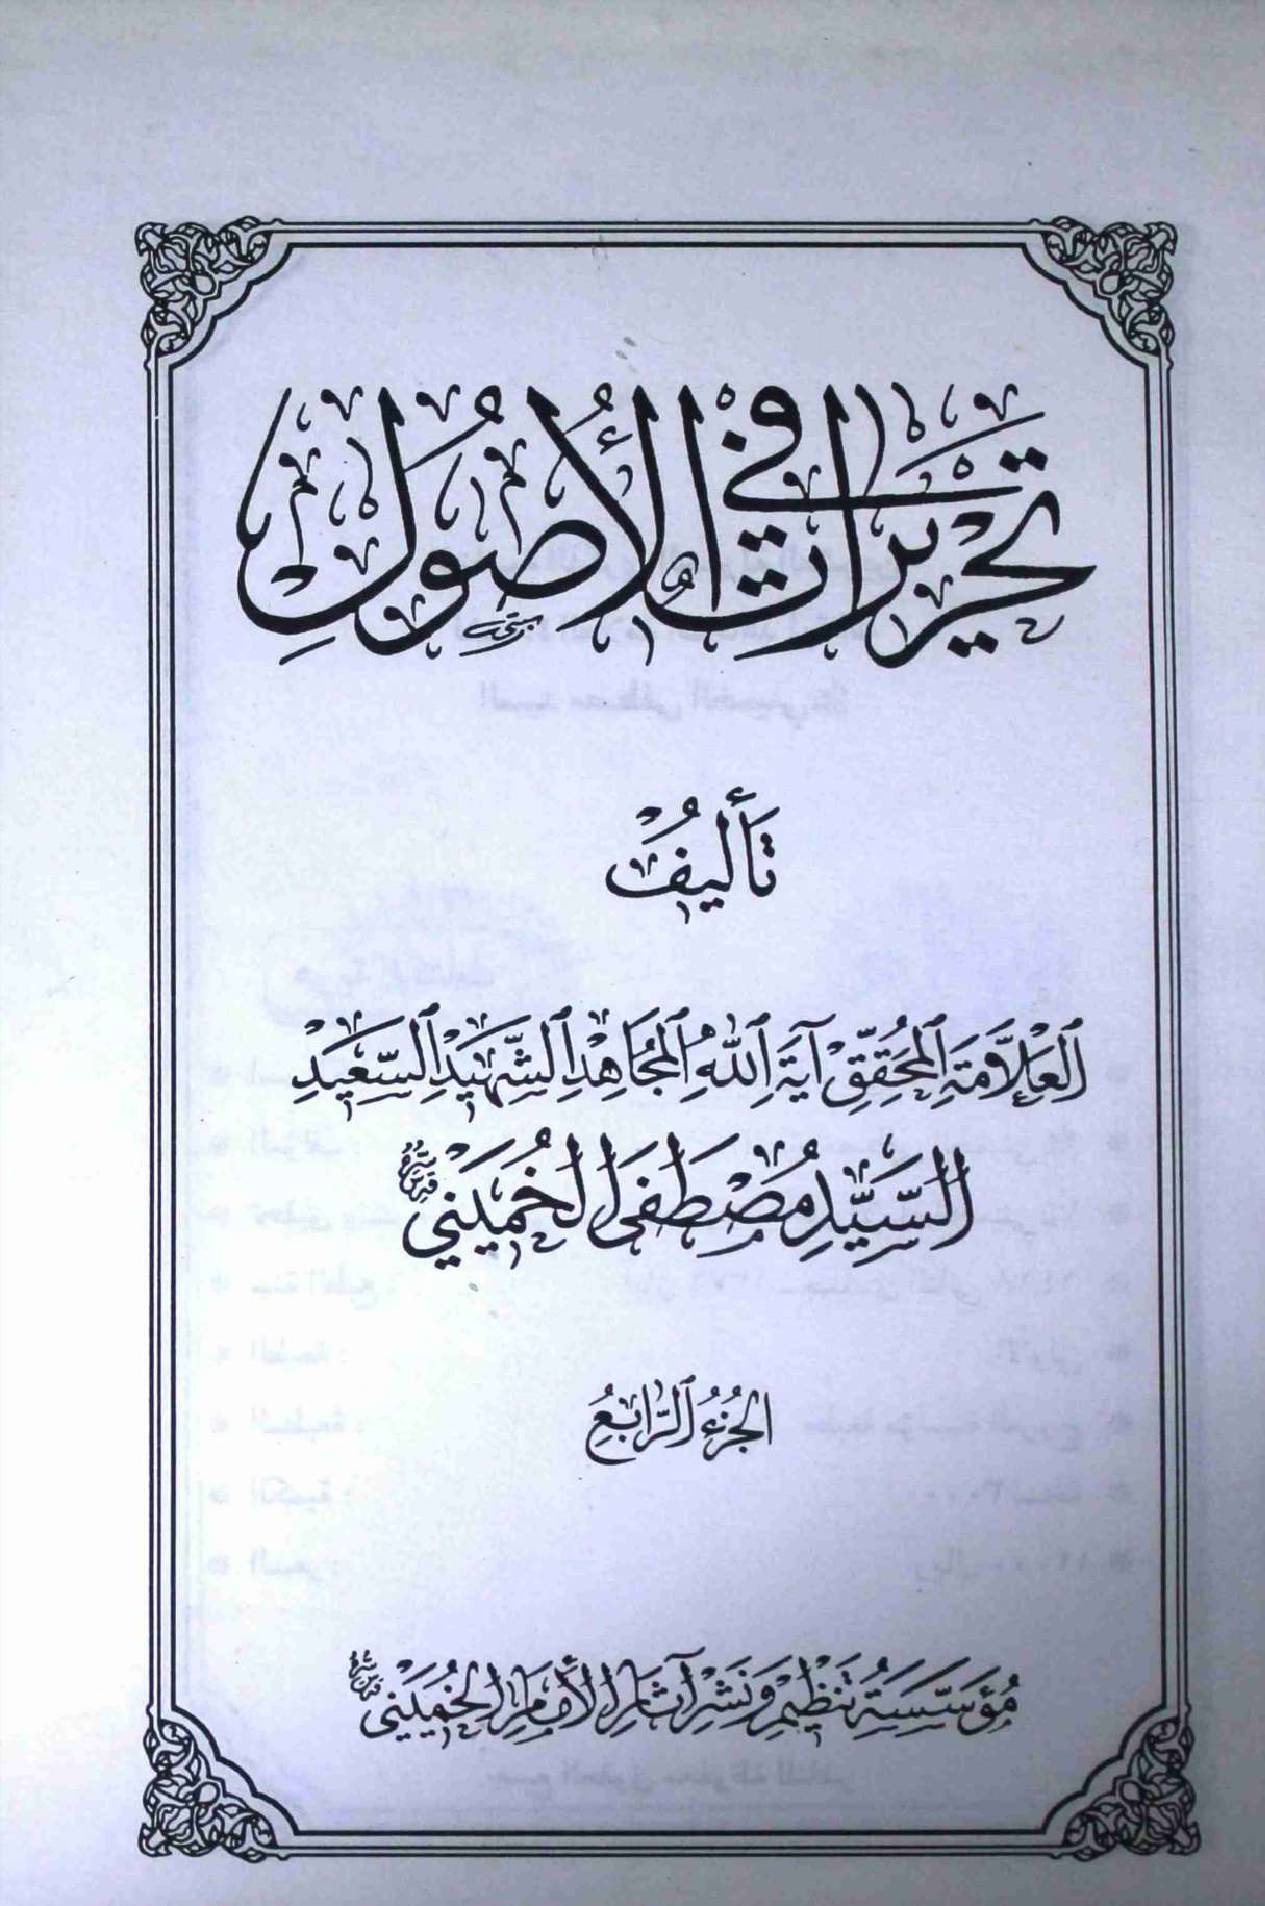 تحريرات في الأصول
تأليف
العلامة المحقق آية الله المجاهد الشهيد السعيد
السيد مصطفى الخميني قدس سره
الجزء الرابع
مؤسسة تنظيم ونشر آثار الإمام الخميني قدس سره